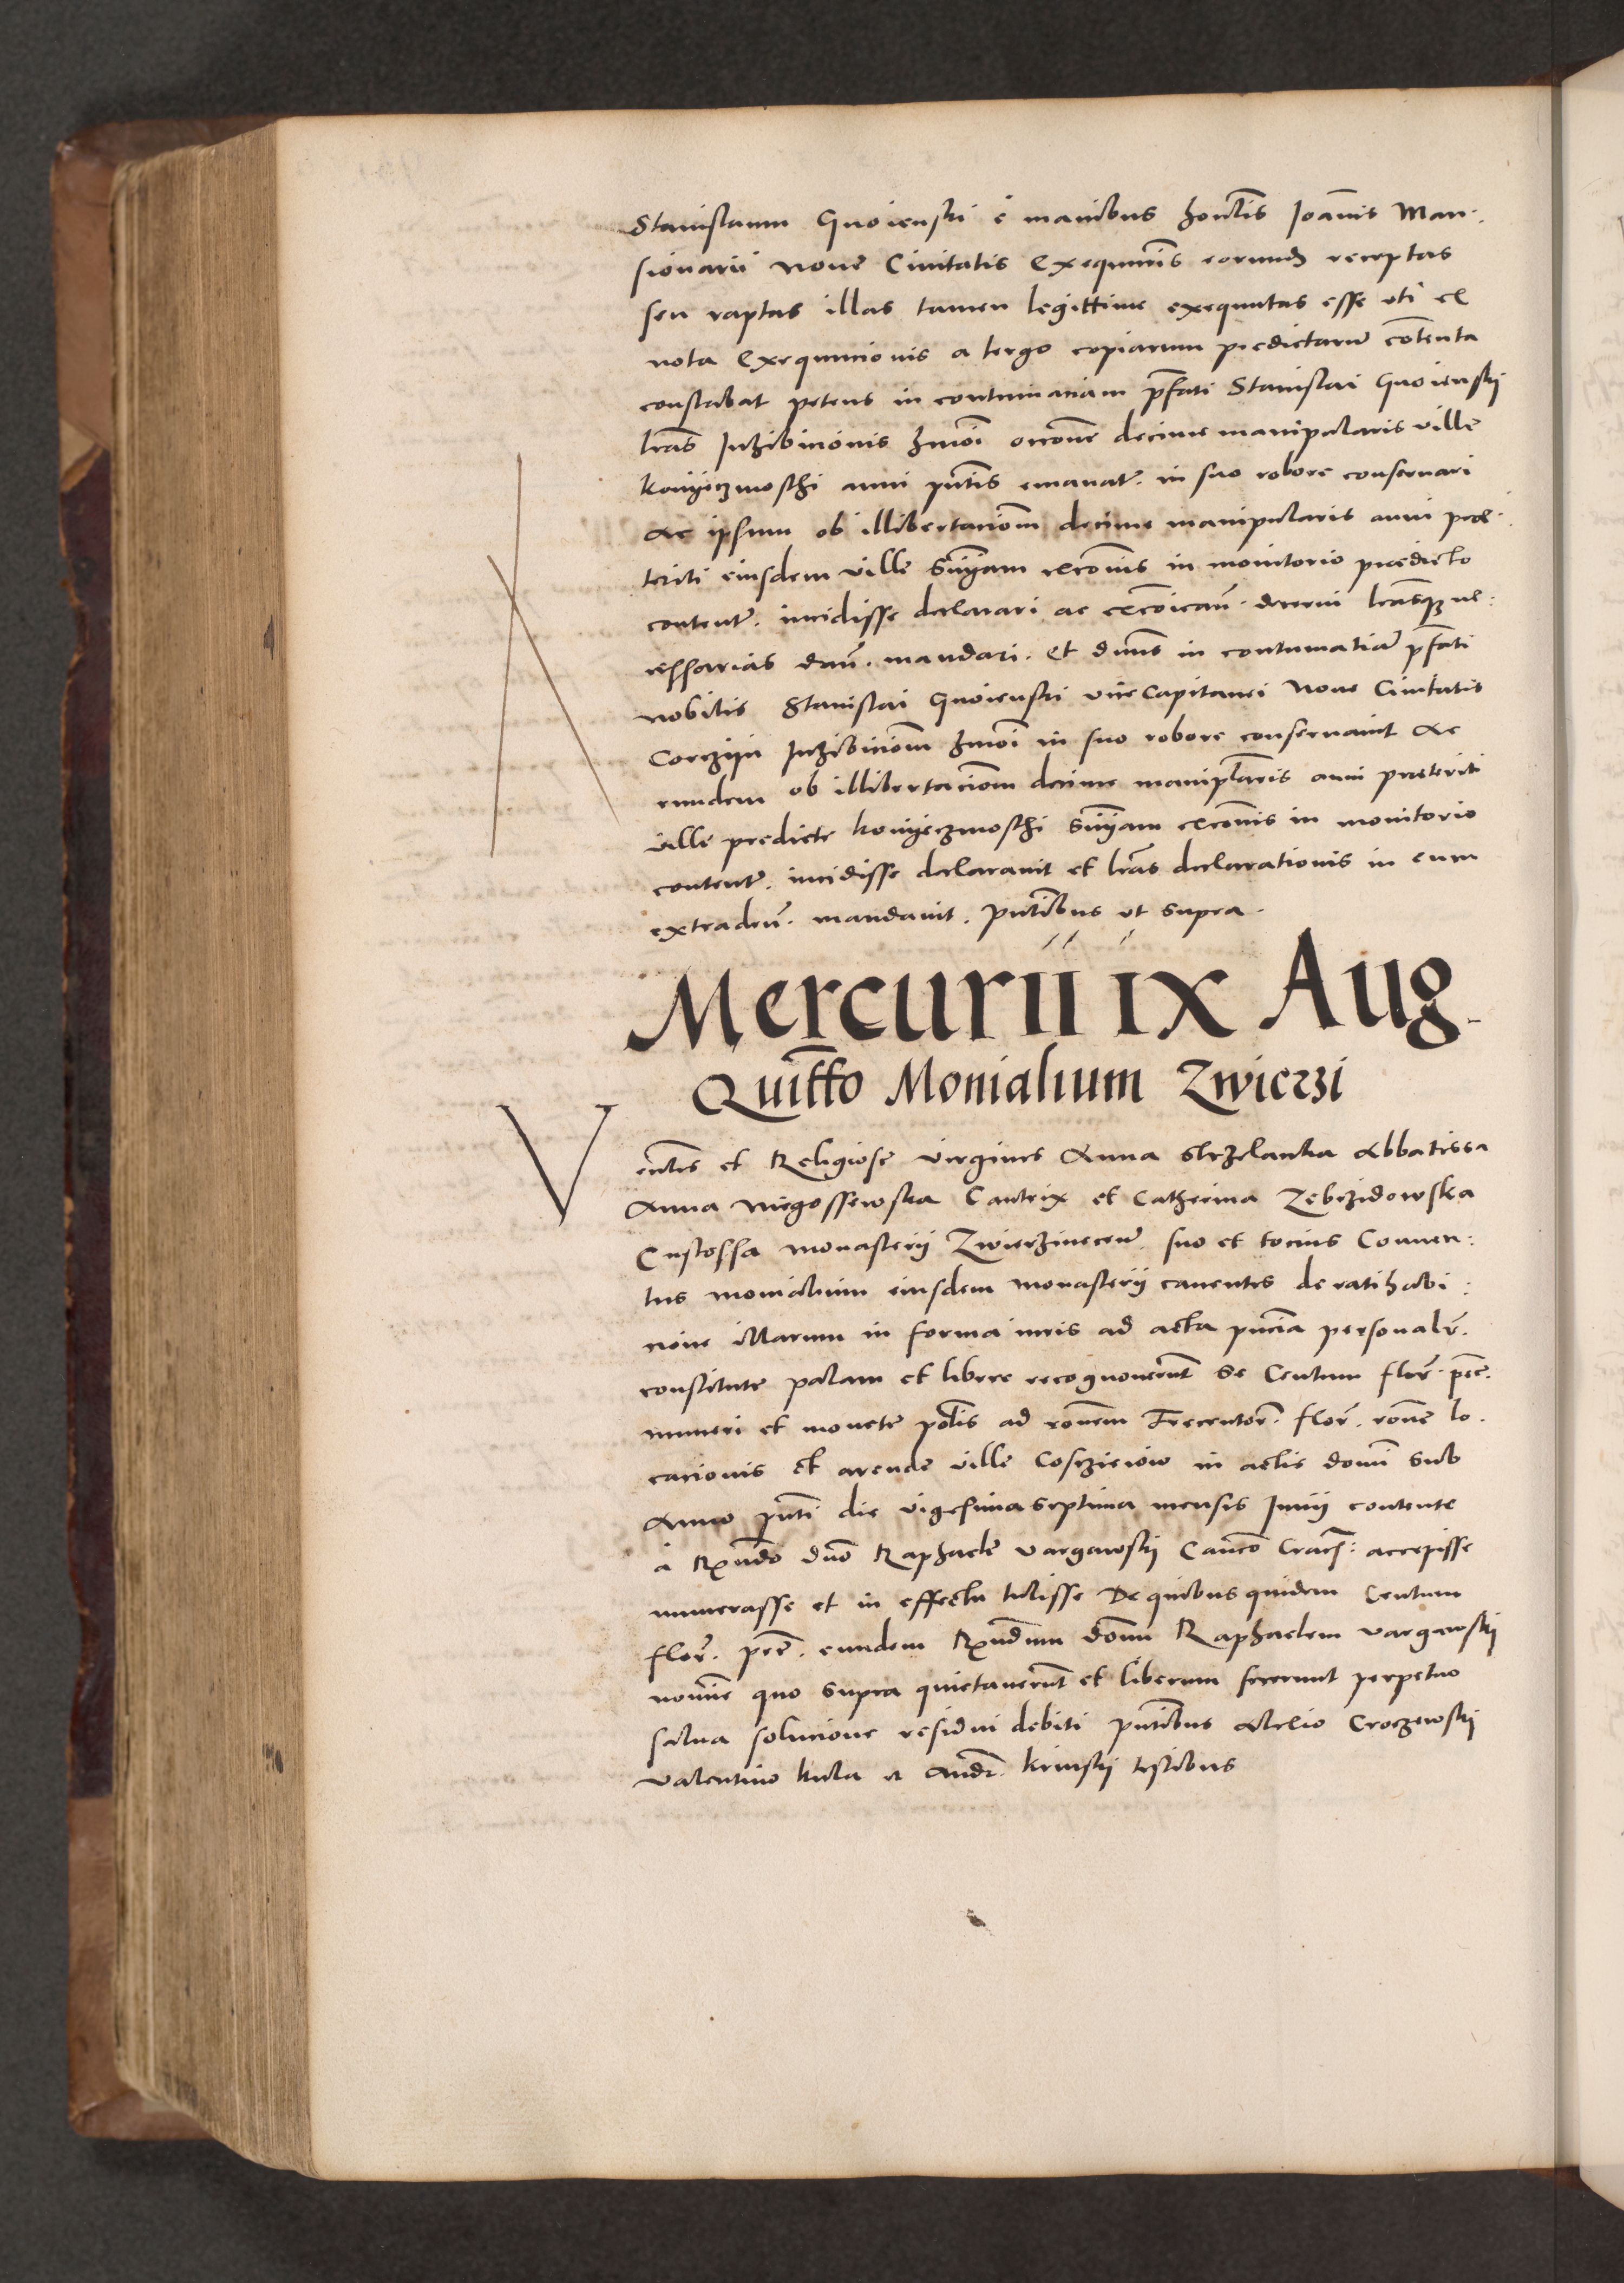 Stanislaum Gnoienski é manibus honlis Joannis Man:
sionarii Nove Civitatis Exequucionis eorundem receptas
seu raptas illas tamen legittime exequutas esse uti ex
nota Exequucionis a tergo copiarum predictarum contenta
constabat petens in contumatiam prefati Stanislai Gnoienskij
lras Inhibicionis hmoi occone decime manipularis ville
konijeczmoschi anni pntis emanat. in suo robore conservari
Ac ipsum ob illibertaciom decime manipularis anni pre:
teriti eiusdem ville snyam excois in monitorio predicto
content. incidisse declarari ac excoican. decerni lrasque ne:
cessarias dan. mandari. Et dnus in contumatiam prefati
Nobilis Stanislai Gnoienski vice Capitanei Nove Civitatis
Corczijn Inhibiciom hmoi in suo robore conservavit Ac
eundem ob illibertaciom decime maniplaris anni preteriti
ville predicte konijeczmoschi snyam excois in monitorio
content. incidisse declaravit et lras declarationis in eum
extraden. mandavit. pntibus ut supra.
Mercurii IX Aug.
Quitto Monialium Zwierzi
Venles et Religiose virgines Anna Abbatissa
Anna Cantrix et Catherina Zebrzidowska
Custossa monasterij Zwierzinecen. suo et tocius Conven:
tus monialium eiusdem monasterij caventes de ratihabi:
cione illarum in forma iuris ad acta pncia personalr.
constitute palam et libere recognoverunt Se Centum flor. pec.
numeri et monete polis ad ronem Trecentor. flor. rone lo
cacionis et arende ville in actis domi sub
Anno pnti die vigesima septima mensis Junij contente
à Rndo dno Raphaele Vargawskij Canco Cracn: accepisse
numerasse et in effectu tulisse De quibus quidem Centum
flor. pec. eundem Rndum domm Raphaelem Vargawskij
nomine quo supra quietaverunt et liberum fecerunt perpetuo
salva solucione residui debiti pntibus Croczewskij
Valentino kula et Andr. krinskij testibus